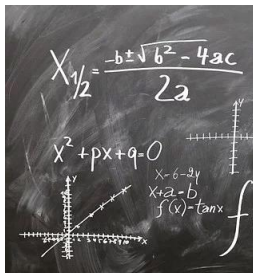 X1/2 = -b±√b² - 4ac / 2a
x² + px + q = 0
x - 6 - 2y
x + a = b
f(x) = tanx
y
x
y
f